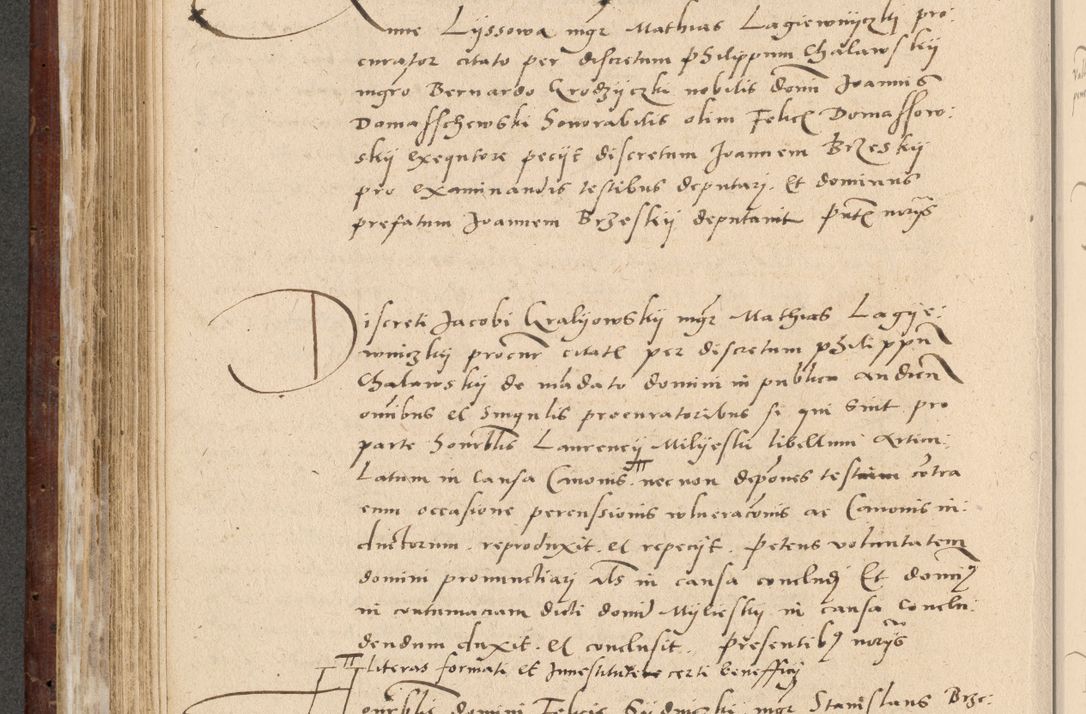 Anne Lyssowa mgr Mathias Lagiewnyczky pro:
curator citato per discretum philippum Chalawskij
mgro Bernardo Grodzyczki nobilis domi Joannis
Domasschewski honorabilis olim Felicis Domassow:
skij exequtore pecijt discretum Joannem Brzeskij
pro examinandis testibus deputari. Et dominus
prefatum Joannem Brzeskij deputavit pntibus norijs
Discreti Jacobi Gralijowskij mgr Mathias Lagye:
wniczkij procur citatis per discretum philippum
Chalawskij de mandato domini in publica audien
omnibus et singulis procuratoribus si qui sint pro
parte honrblis Laurencij Milijeski libellum Articu:
Latum in causa Camonis. nec non depones testium contra
eum occasione percussionis vulneraconis ac Camonis in:
ductorum. reproduxit. et repecijt. petens voluntatem
domini pronunctiari als in causa concludj Et domi
in contumaciam dicti domi Mijlieskij in causa Conclu:
dendum duxit. et conclusit. Presentibus norijs
literas formati et Investiture certi beneffitij
honrblis domini Felicis mgr Stanislaus Brze: